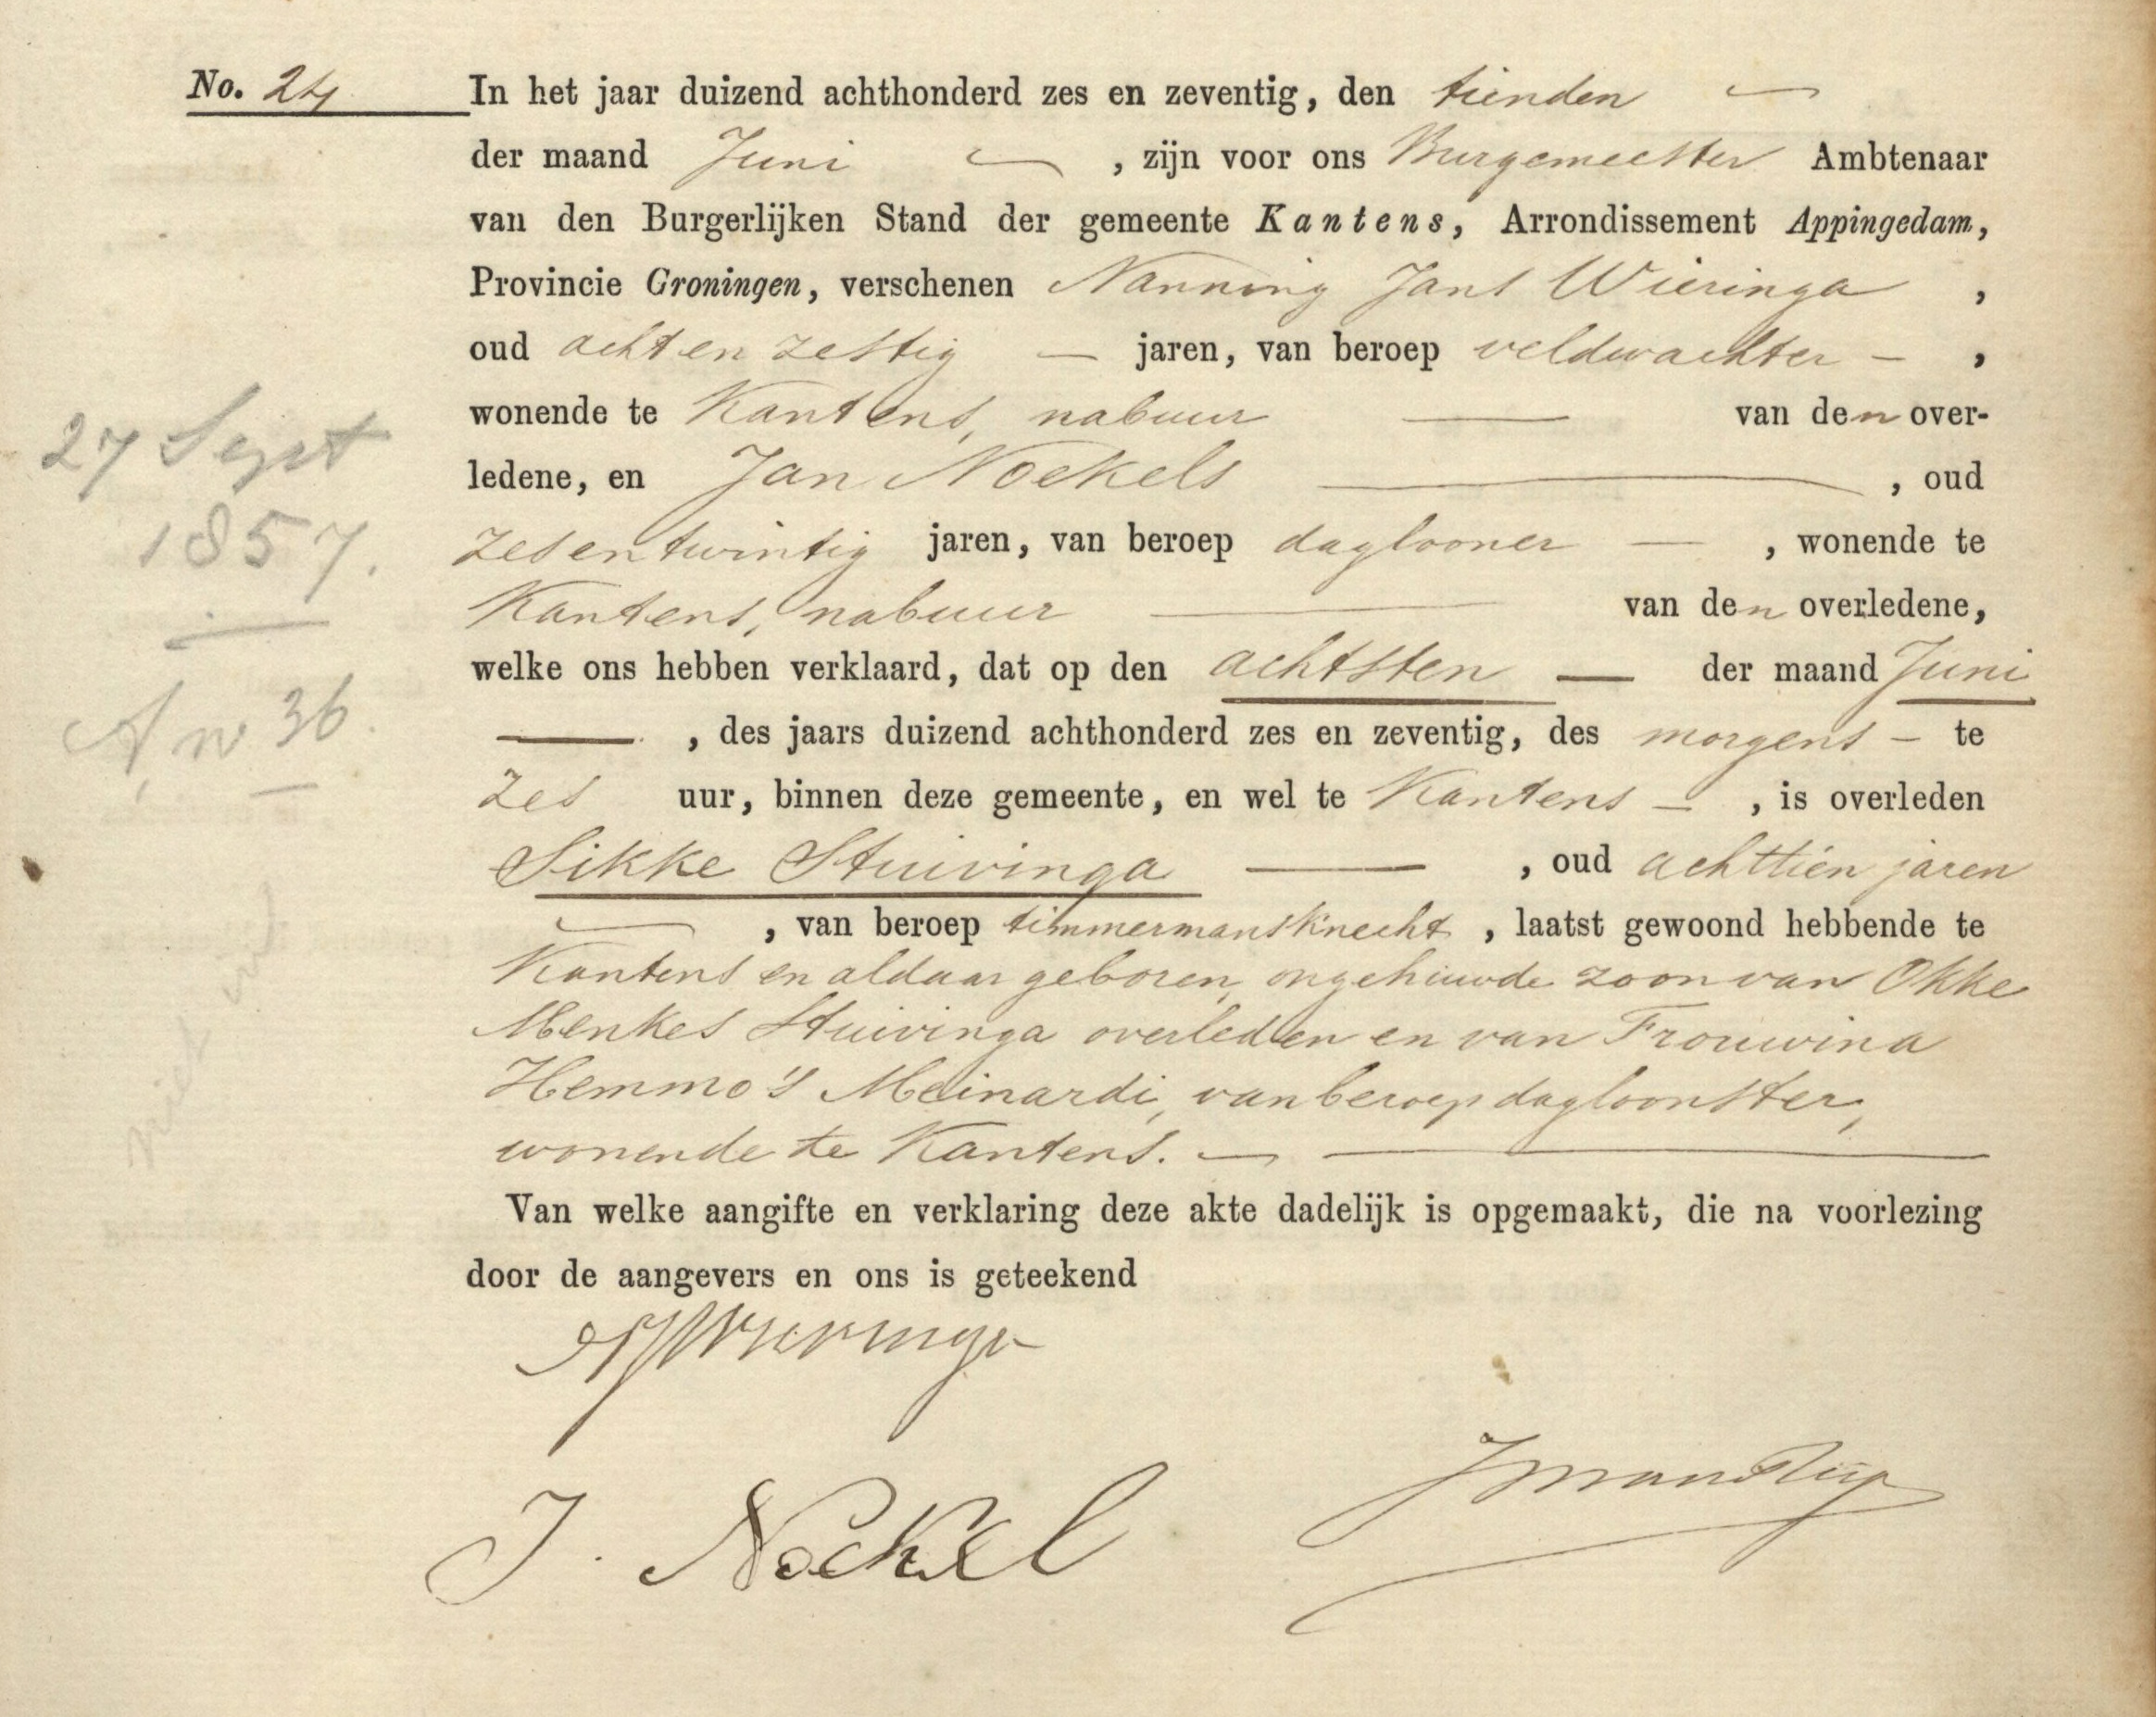 No. 24
In het jaar duizend achthonderd zes en zeventig, den tienden
der maand Juni , zijn voor ons Burgemeester Ambtenaar
van den Burgerlijken Stand der gemeente Kantens, Arrondissement Appingedam,
Provincie Groningen, verschenen Nanning Jans Wieringa ,
oud acht en zestig — jaren, van beroep veldwachter – ,
wonende te Kantens, nabuur — van den over-
ledene, en Jan Noekels — , oud
zesentwintig jaren, van beroep daglooner — , wonende te
Kantens, nabuur — van den overledene,
welke ons hebben verklaard, dat op den achtsten — der maand Juni
— , des jaars duizend achthonderd zes en zeventig, des morgens – te
zes uur, binnen deze gemeente, en wel te Kantens – , is overleden
Sikke Stuivinga — , oud achttien jaren
— , van beroep timmermansknecht , laatst gewoond hebbende te
Kantens en aldaar geboren, ongehuwde zoon van Okke
Menkes Stuivinga overleden en van Frouwina
Hemmo's Meinardi, van beroep dagloonster,
wonende te Kantens. —
Van welke aangifte en verklaring deze akte dadelijk is opgemaakt, die na voorlezing
door de aangevers en ons is geteekend
NJWieringa
J. Noekel
27 Sept
1857.
A, no 36.
niet